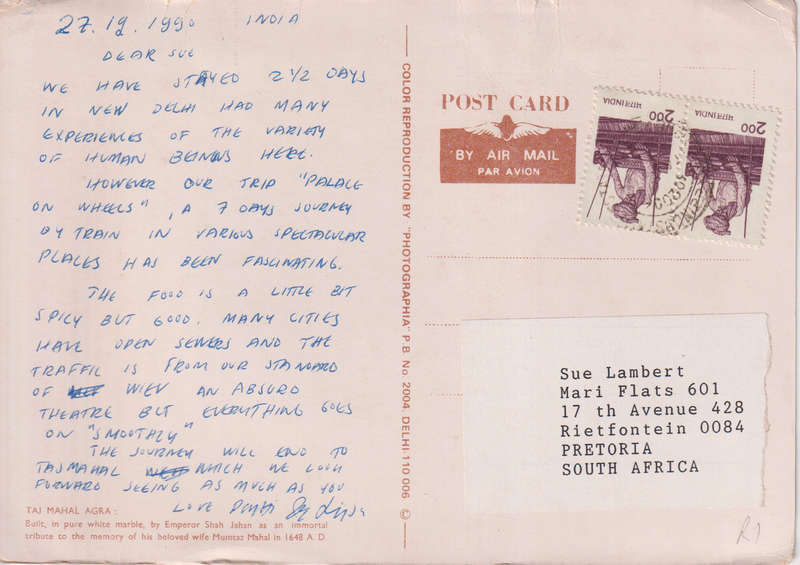 27.12.1990 INDIA
DEAR SUE
WE HAVE STAYED 2 1/2 DAYS
IN NEW DELHI HAD MANY
EXPERIENCES OF THE VARIETY
OF HUMAN BEINGS HERE.
HOWEVER OUR TRIP "PALACE
ON WHEELS", A 7 DAYS JOURNEY
BY TRAIN IN VARIOUS SPECTACULAR
PLACES HAS BEEN FASCINATING.
THE FOOD IS A LITTLE BIT
SPICY BUT GOOD. MANY CITIES
HAVE OPEN SEWERS AND THE
TRAFFIC IS FROM OUR STANDARD
OF WIEV AN ABSURD
THEATRE BUT EVERYTHING GOES
ON "SMOOTHLY"
THE JOURNEY WILL END TO
TAJMAHAL WHICH WE LOOK
FORWARD SEEING AS MUCH AS YOU
LOVE
TAJ MAHAL AGRA :
Built, in pure white marble, by Emperor Shah Jahan as an immortal
tribute to the memory of his beloved wife Mumtaz Mahal in 1648 A. D
COLOR REPRODUCTION BY "PHOTOGRAPHIA" P.B. No. 2004, DELHI-110 006 ©
POST CARD
BY AIR MAIL
PAR AVION
भारत INDIA
2.00
भारत INDIA
2.00
Sue Lambert
Mari Flats 601
17 th Avenue 428
Rietfontein 0084
PRETORIA
SOUTH AFRICA
R1